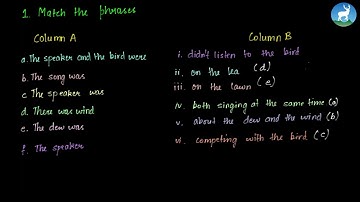 1. Match the phrases
Column A
a. The speaker and the bird were
b. The song was
c. The speaker was
d. There was wind
e. The dew was
f. The speaker
Column B
i. didn't listen to the bird
ii. on the sea (d)
iii. on the lawn (e)
iv. both singing at the same time (a)
v. about the dew and the wind (b)
vi. competing with the bird (c)